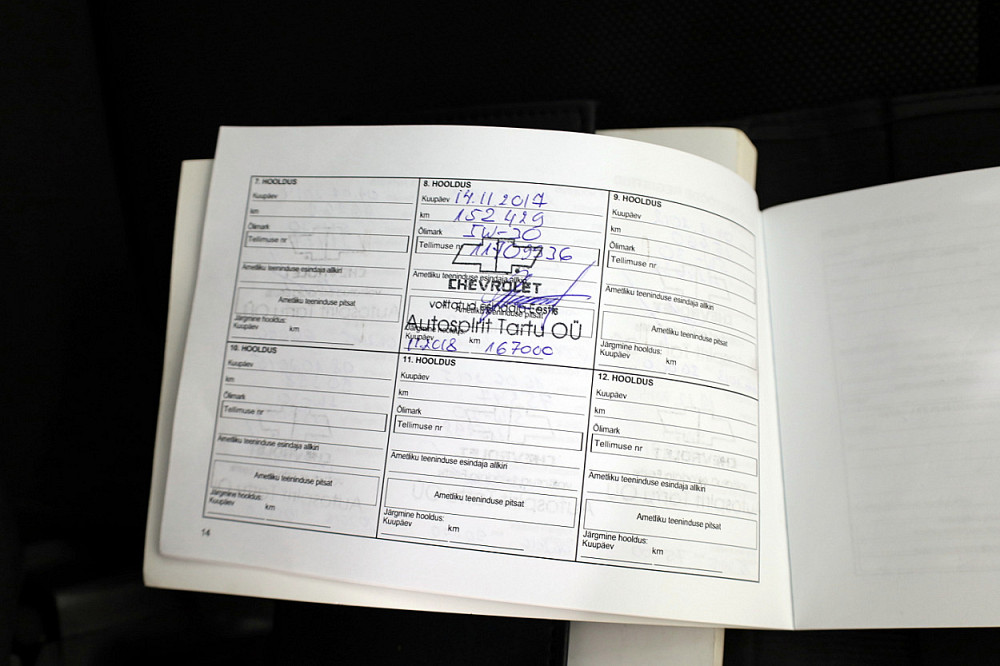 7. HOOLDUS
Kuupäev
km
Õlimark
Tellimuse nr
Ametliku teeninduse esindaja allkiri
Ametliku teeninduse pitsat
Järgmine hooldus:
Kuupäev km
8. HOOLDUS
Kuupäev 14.11.2017
km 152 429
Õlimark 5W-30
Tellimuse nr
Ametliku teeninduse esindaja allkiri
CHEVROLET
Ametliku teeninduse pitsat
Autospirit Tartu OÜ
Kuupäev km
11.2018 167000
9. HOOLDUS
Kuupäev
km
Õlimark
Tellimuse nr
Ametliku teeninduse esindaja allkiri
Ametliku teeninduse pitsat
Järgmine hooldus:
Kuupäev km
10. HOOLDUS
Kuupäev
km
Õlimark
Tellimuse nr
Ametliku teeninduse esindaja allkiri
Ametliku teeninduse pitsat
Järgmine hooldus:
Kuupäev km
11. HOOLDUS
Kuupäev
km
Õlimark
Tellimuse nr
Ametliku teeninduse esindaja allkiri
Ametliku teeninduse pitsat
Järgmine hooldus:
Kuupäev km
12. HOOLDUS
Kuupäev
km
Õlimark
Tellimuse nr
Ametliku teeninduse esindaja allkiri
Ametliku teeninduse pitsat
Järgmine hooldus:
Kuupäev km
14